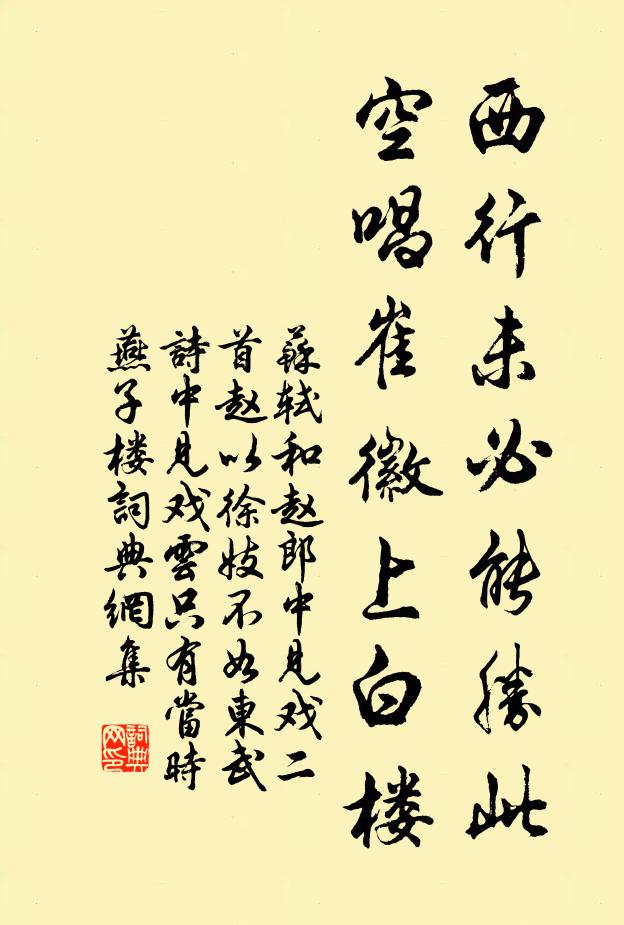 西行未必能勝此
空唱崔徽上白楼
蘇轼和赵郎中見戏二
首赵以徐妓不如東武
詩中見戏雲只有當時
燕子楼詞典網集
詞典網印